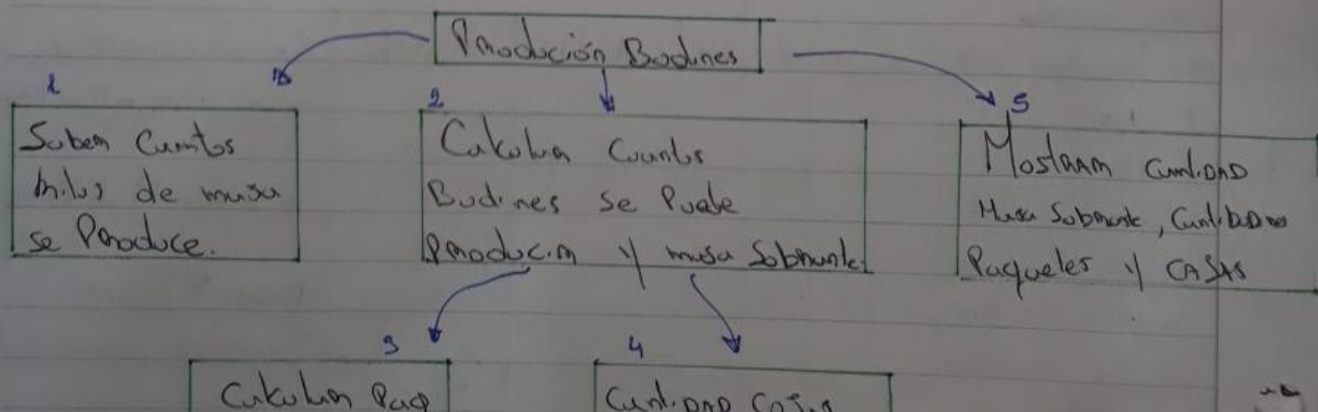 Produción Budines
1
Saber Cuantos
kilos de masa
se Produce.
2
Calcular Cuantos
Budines se Puede
Producir y masa Sobrante
5
Mostrar CantiDAD
Masa Sobrante, CantiDAD
Paquetes y CAJAS
3
Calcular Paq
4
CantiDAD Cajas